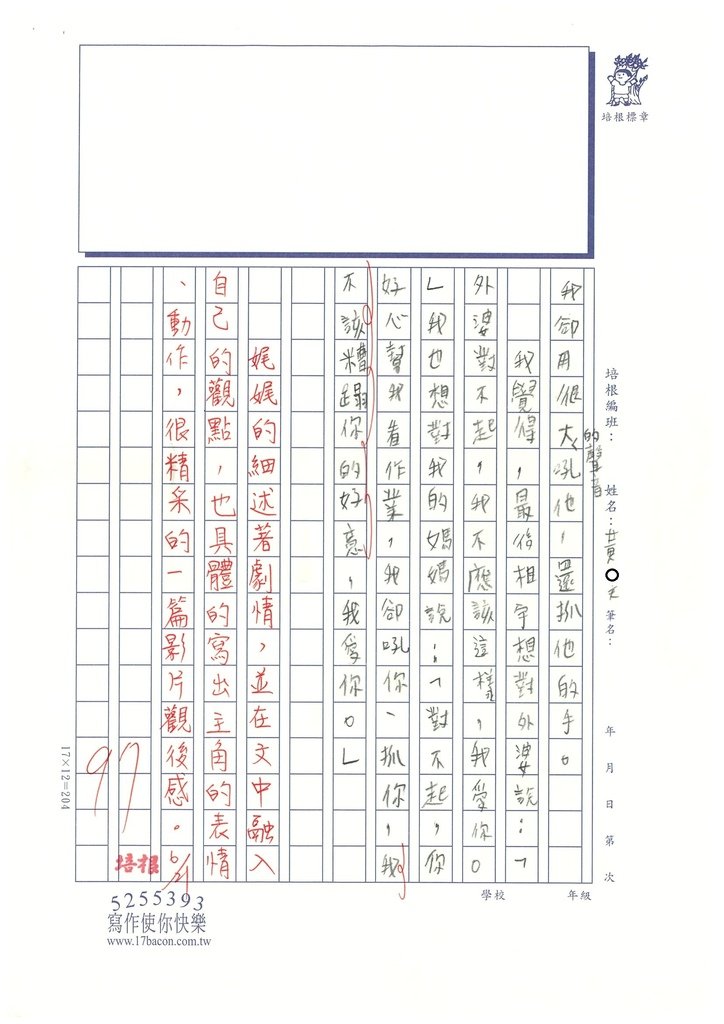 培根標章
培根編班：
姓名：黃○天
筆名：
年 月 日 第 次
我卻用很大的聲音吼他，還抓他的手。
我覺得，最後相宇想對外婆說：「
外婆對不起，我不應該這樣，我愛你。
」我也想對我的媽媽說：「對不起，你
好心幫我看作業，我卻吼你、抓你，我
不該糟蹋你的好意，我愛你。」
娓娓的細述著劇情，並在文中融入
自己的觀點，也具體的寫出主角的表情
、動作，很精采的一篇影片觀後感。6/21
97
培根
17×12=204
學校
年級
5255393
寫作使你快樂
www.17bacon.com.tw